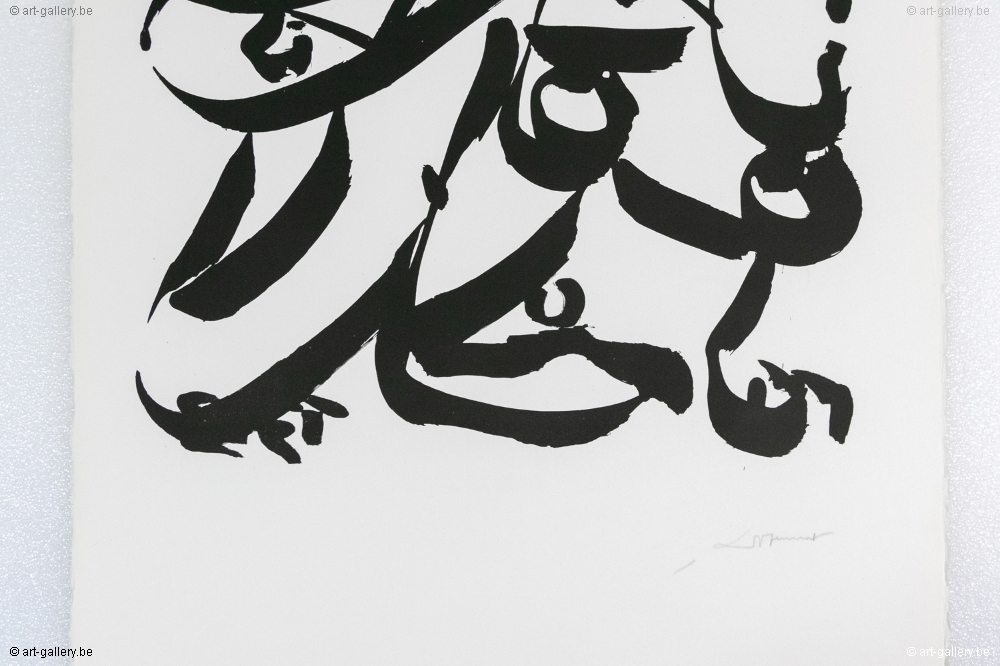 © art-gallery.be © art-gallery.be
© art-gallery.be © art-gallery.be